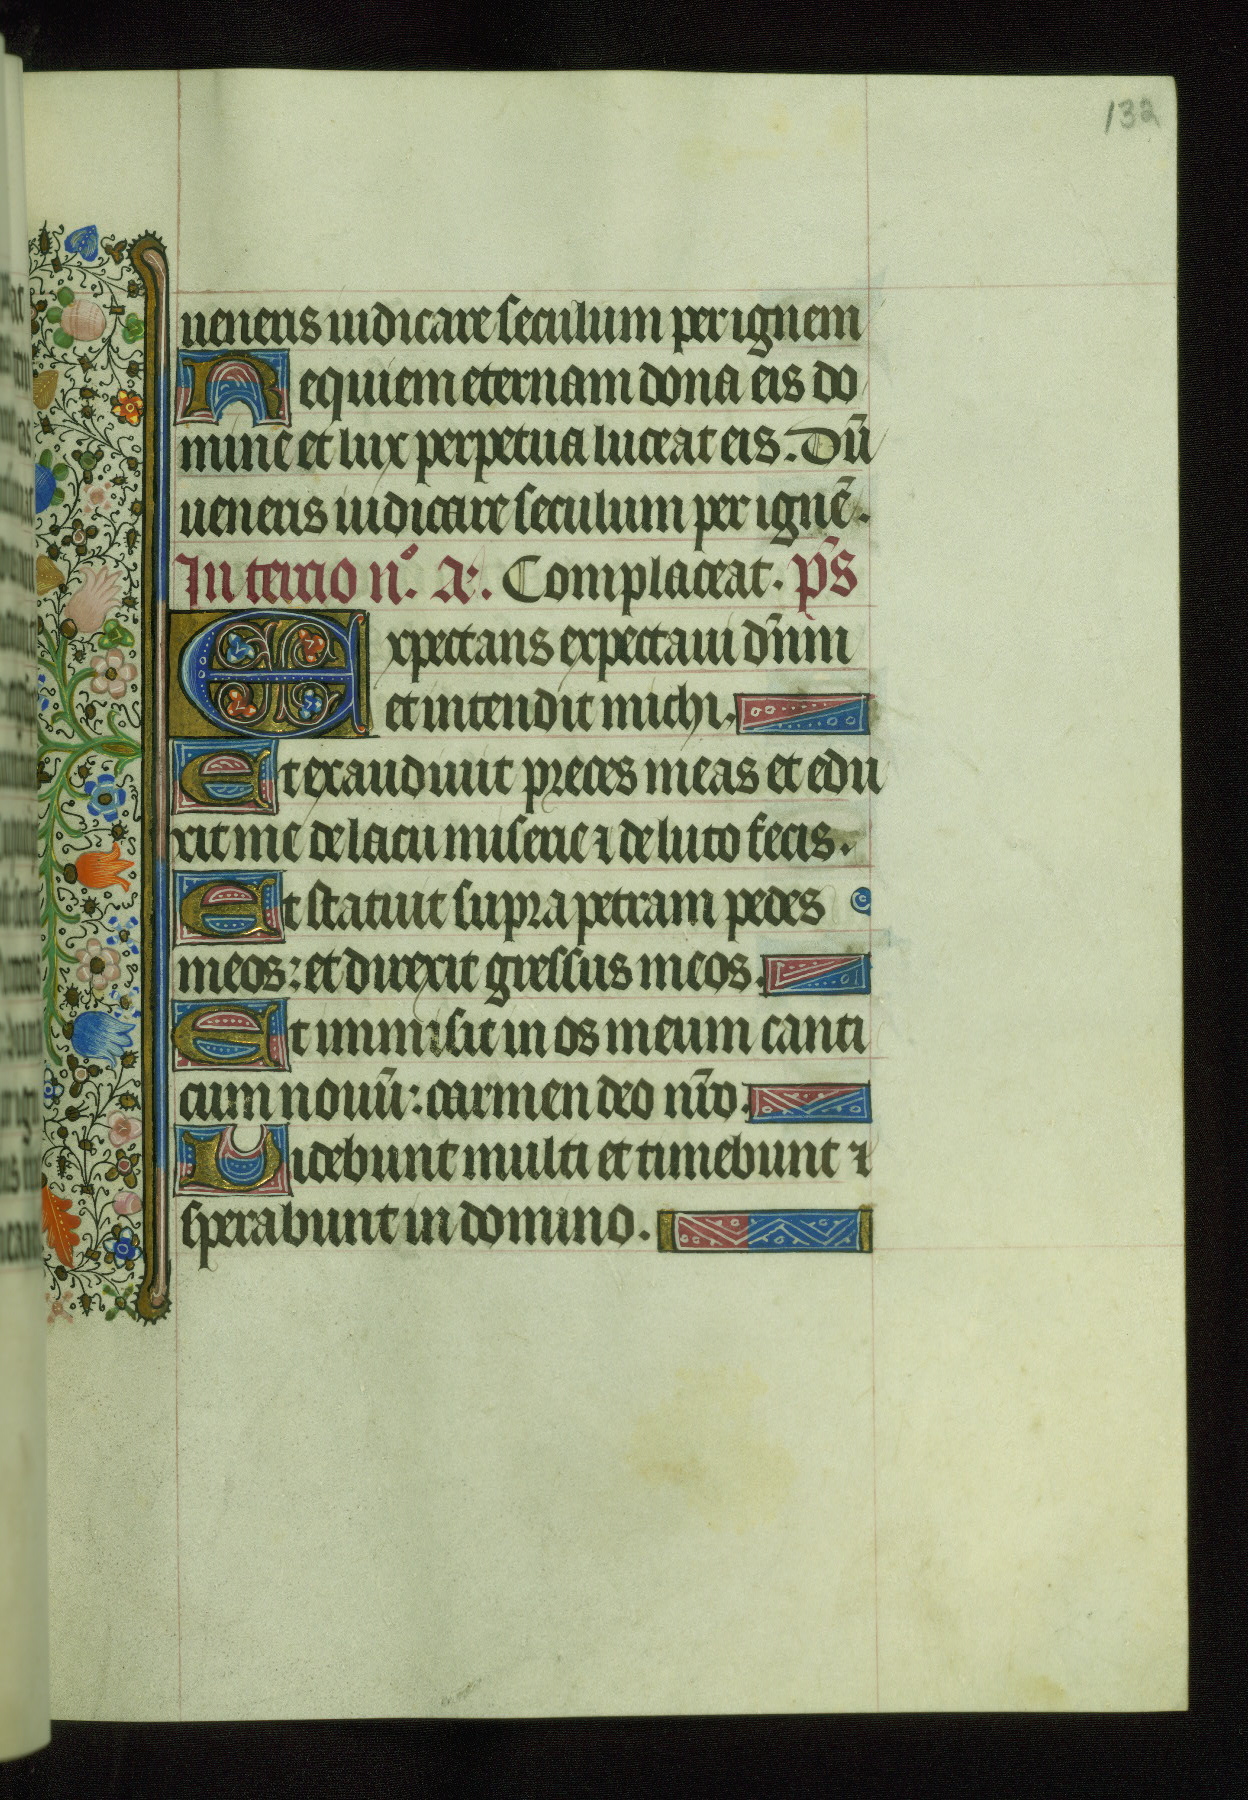 132
ueneris iudicare seculum per ignem
Requiem eternam dona eis do
mine et lux perpetua luceat eis. Dū
ueneris iudicare seculum per ignē.
In tercio n°. A. Complaceat. p̄s
Expectans expectaui dn̄m
et intendit michi.
Et exaudiuit preces meas et edu
xit me de lacu miserie ⁊ de luto fecis.
Et statuit supra petram pedes
meos: et direxit gressus meos.
Et immisit in os meum canti
cum nouū: carmen deo nr̄o.
Uidebunt multi et timebunt ⁊
sperabunt in domino.